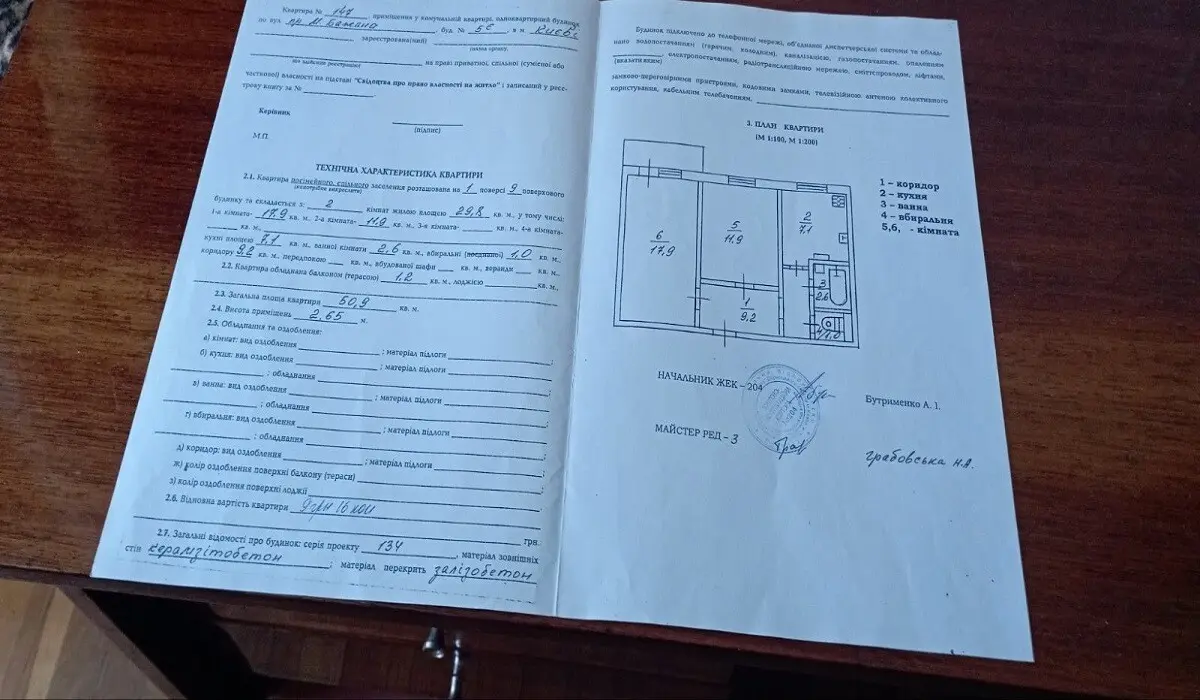 Квартира № 147, приміщення у комунальній квартирі, одноквартирний будинок
по вул. пр. М. Бажана, буд. № 5е, в м. Києві
зареєстрована(ний)
(назва органу,
на праві приватної, спільної (сумісної або
часткової) власності на підставі "Свідоцтва про право власності на житло" і записаний у реє-
трову книгу за №
Керівник
(підпис)
М.П.
ТЕХНІЧНА ХАРАКТЕРИСТИКА КВАРТИРИ
2.1. Квартира посімейного, спільного заселення розташована на 1 поверсі 9 поверхового
(непотрібне викреслити)
будинку та складається з: 2 кімнат жилою площею 29,8 кв. м., у тому числі:
1-а кімната- 17,9 кв. м., 2-а кімната- 11,9 кв. м., 3-я кімната- кв. м., 4-а кімната-
кв. м.,
кухні площею 7,1 кв. м., ванної кімнати 2,6 кв. м., вбиральні (поєднаної) 1,0 кв. м.,
коридору 9,2 кв. м., передпокою кв. м., вбудованої шафи кв. м., веранди кв. м.,
2.2. Квартира обладнана балконом (терасою) 1,2 кв. м., лоджією кв. м.,
2.3. Загальна площа квартири 50,9 кв. м.
2.4. Висота приміщень 2,65 м.
2.5. Обладнання та оздоблення:
а) кімнат: вид оздоблення ; матеріал підлоги ;
б) кухня: вид оздоблення ; матеріал підлоги
; обладнання ;
в) ванна: вид оздоблення ; матеріал підлоги
; обладнання ;
г) вбиральня: вид оздоблення ; матеріал підлоги
; обладнання ;
д) коридор: вид оздоблення ; матеріал підлоги ;
ж) колір оздоблення поверхні балкону (тераси) ;
з) колір оздоблення поверхні лоджії
2.6. Відновна вартість квартири 9 грн 16 коп
грн.
2.7. Загальні відомості про будинок: серія проекту 134, матеріал зовнішніх
стін керамзітобетон ; матеріал перекрить залізобетон
Будинок підключено до телефонної мережі, об'єднаної диспетчерської системи та облад-
нано водопостачанням (гарячим, холодним), каналізацією, газопостачанням, опаленням
електропостачанням, радіотрансляційною мережею, сміттєпроводом, ліфтами,
(вказати яким)
замково-переговорними пристроями, кодовими замками, телевізійною антеною колективного
користування, кабельним телебаченням,
3. ПЛАН КВАРТИРИ
(М 1:100, М 1:200)
1 – коридор
2 – кухня
3 – ванна
4 – вбиральня
5,6, - кімната
6
17,9
5
11,9
2
7,1
1
9,2
3
2,6
4/1,0
НАЧАЛЬНИК ЖЕК – 204
Бутрименко А. І.
МАЙСТЕР РЕД – 3
Грабовська Н.А.